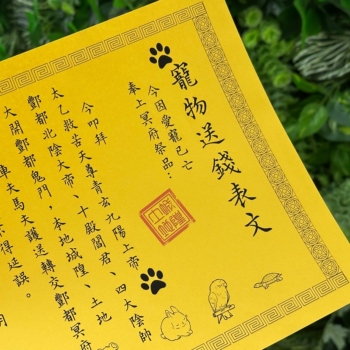 寵物送錢表文
今因愛寵已亡
奉上冥府祭品：
今叩拜
太乙救苦天尊青玄九陽上帝
酆都北陰大帝、十殿閻君、四大陰帥
本地城隍、土地
大開酆都鬼門，
車夫馬夫護送轉交酆都冥府
得延誤。